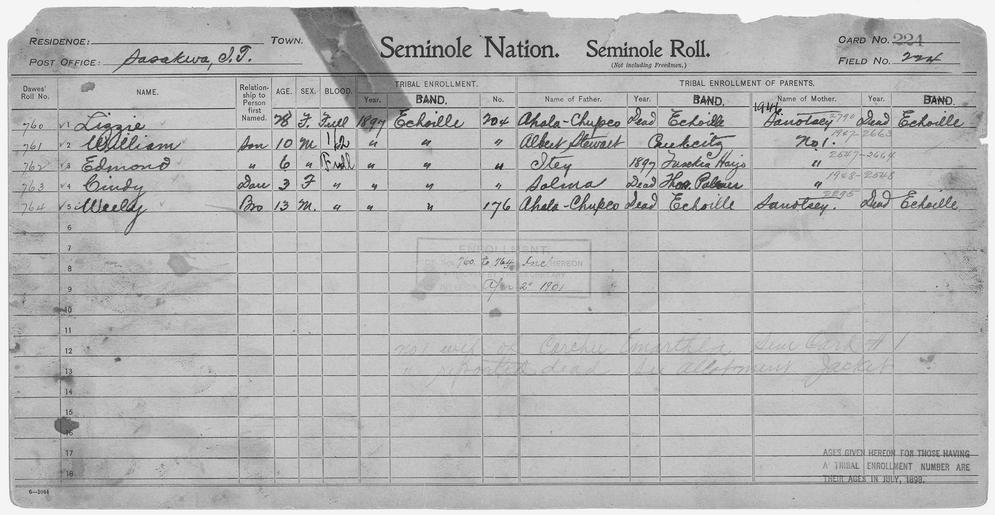 RESIDENCE: TOWN. Seminole Nation. Seminole Roll. CARD NO. 224
POST OFFICE: Sasakwa, I.T. (Not including Freedmen.) FIELD NO. 224
Dawes' Roll No. NAME. Relationship to Person first Named. AGE. SEX. BLOOD. TRIBAL ENROLLMENT. TRIBAL ENROLLMENT OF PARENTS.
Year. BAND. No. Name of Father. Year. BAND. Name of Mother. Year. BAND.
1946 2790
760 √1 Lizzie 28 F. Full 1897 Echoille 204 Ahala-Chupco Dead Echoille Sanotsey Dead Echoille
1947-2663
761 √2 William Son 10 M 1/2 " " " Albert Stewart No 1.
2547-2664
762 √3 Edmond " 6 " Full " " " Itey 1897 Tuskia Harjo "
1968-2548
763 √4 Cindy Dau 3 F " " " " Salma Dead Thos. Palmer "
2895
764 √5 Weely Bro 13 M. " " " 176 Ahala-Chupco Dead Echoille Sanotsey. Dead Echoille
6
7
ENROLLMENT
8 760 to 764 Inc HEREON
9 Apr 2" 1901
10
11
No 1 wife of Sem Card # 1
12
" reported dead See allotment Jacket
13
14
15
16
17
18
AGES GIVEN HEREON FOR THOSE HAVING
A TRIBAL ENROLLMENT NUMBER ARE
THEIR AGES IN JULY, 1898.